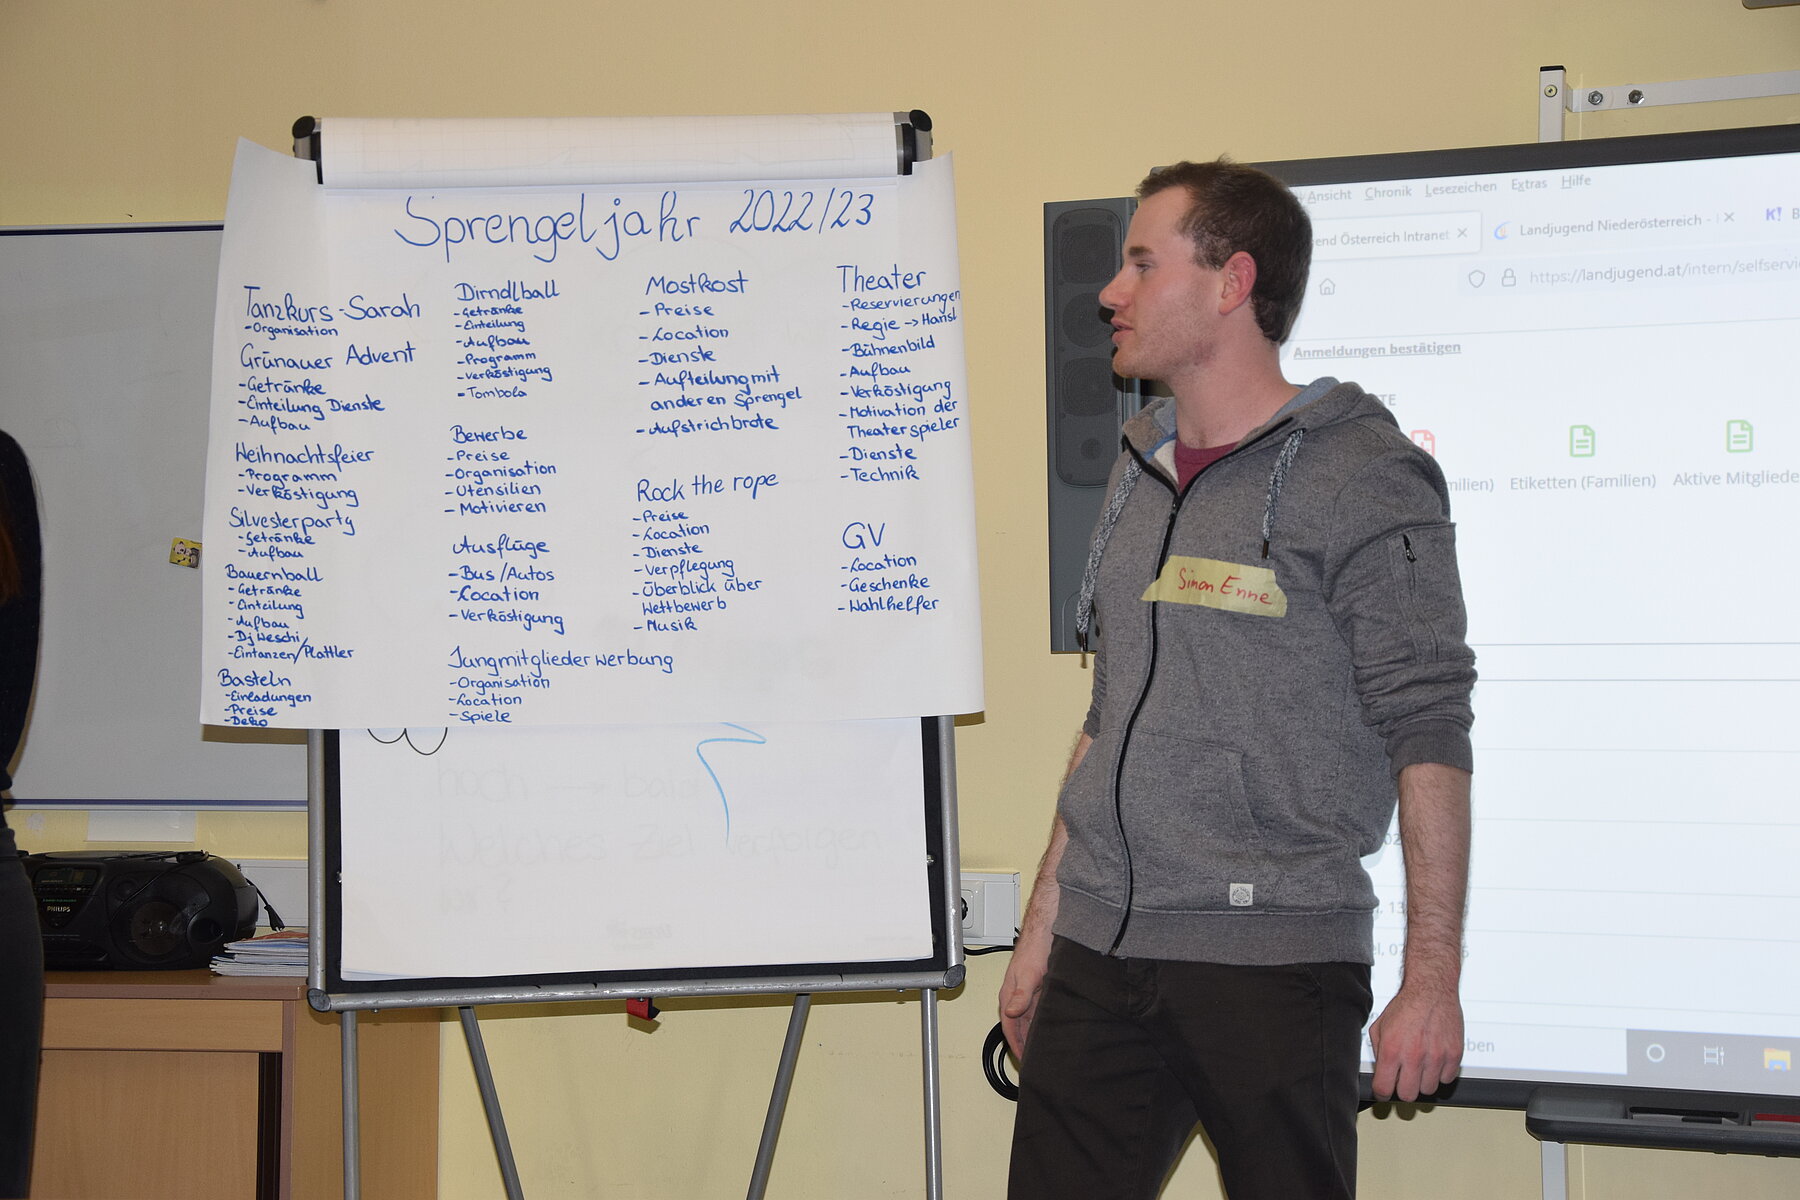 Sprengeljahr 2022/23
Tanzkurs-Sarah
-Organisation
Grünauer Advent
-Getränke
-Einteilung Dienste
-Aufbau
Weihnachtsfeier
-Programm
-Verköstigung
Silvesterparty
-Getränke
-Aufbau
Bauernball
-Getränke
-Einteilung
-Aufbau
-Dj Weschi
-Eintanzen/Plattler
Basteln
-Einladungen
-Preise
-Deko
Dirndlball
-Getränke
-Einteilung
-Aufbau
-Programm
-Verköstigung
-Tombola
Bewerbe
-Preise
-Organisation
-Utensilien
-Motivieren
Ausflüge
-Bus/Autos
-Location
-Verköstigung
Jungmitgliederwerbung
-Organisation
-Location
-Spiele
Mostkost
-Preise
-Location
-Dienste
-Aufteilung mit
anderen Sprengel
-Aufstrichbrote
Rock the rope
-Preise
-Location
-Dienste
-Verpflegung
-Überblick über
Wettbewerb
-Musik
Theater
-Reservierungen
-Regie → Hansl
-Bühnenbild
-Aufbau
-Verköstigung
-Motivation der
Theaterspieler
-Dienste
-Technik
GV
-Location
-Geschenke
-Wahlhelfer
Welches Ziel verfolgen
PHILIPS
Simon Enne
Ansicht Chronik Lesezeichen Extras Hilfe
end Österreich Intranet × Landjugend Niederösterreich - × K! B
https://landjugend.at/intern/selfservi
Anmeldungen bestätigen
TE
milien) Etiketten (Familien) Aktive Mitgliede
eben